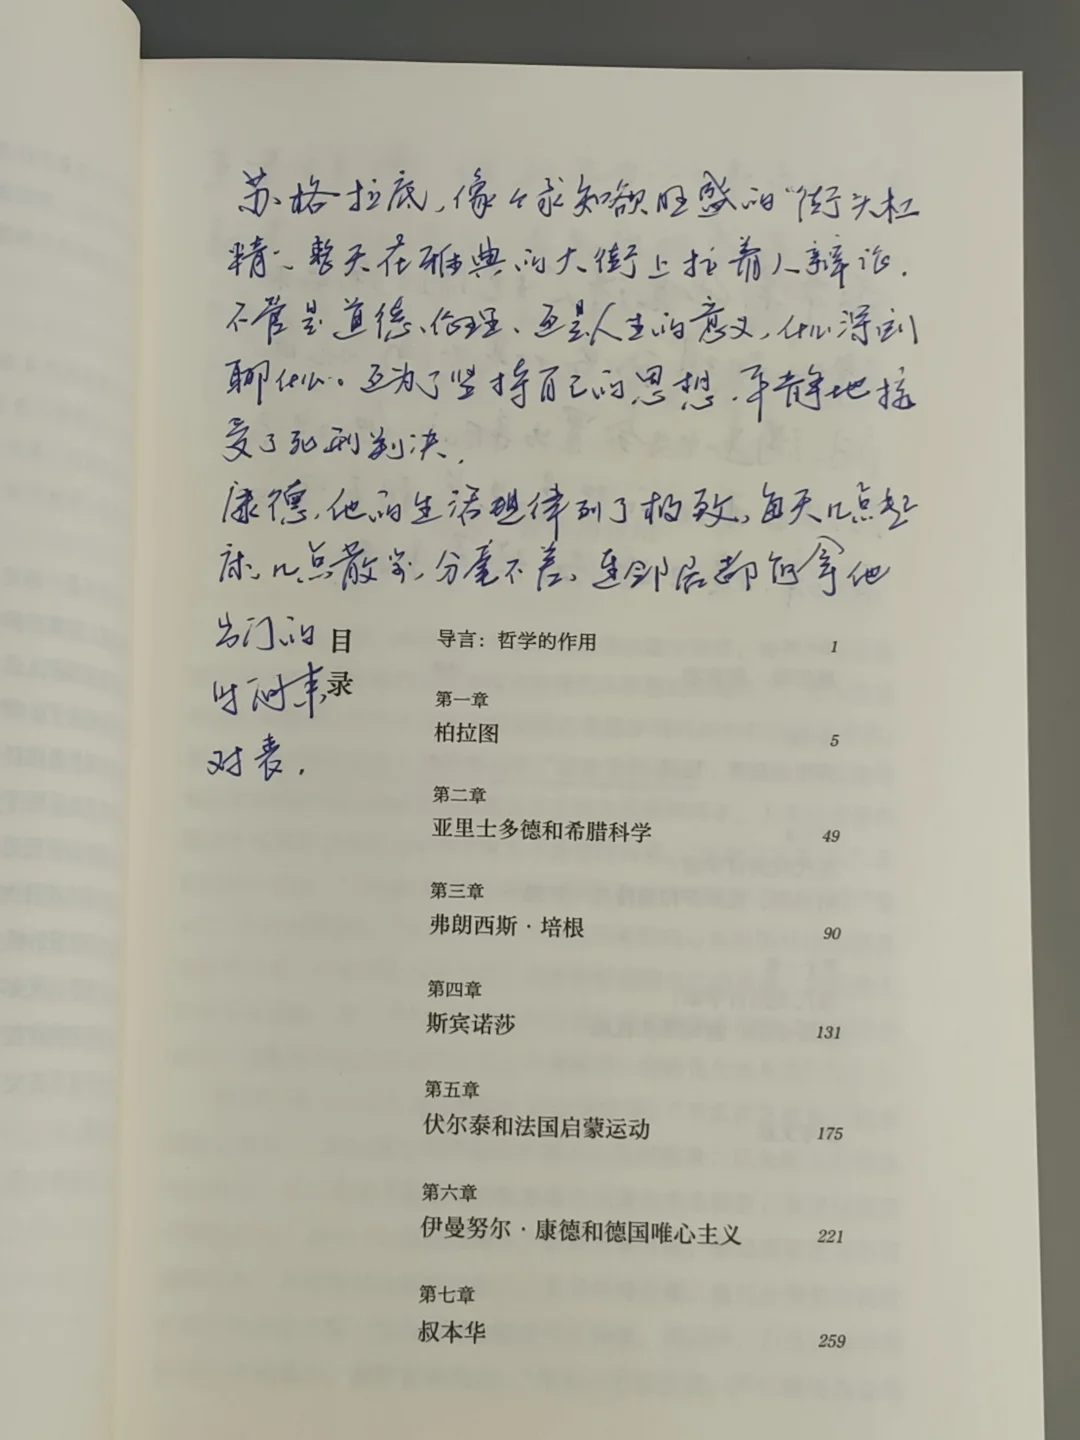 苏格拉底，像个求知欲旺盛的“街头杠
精”、整天在雅典的大街上拉着人辩论，
不管是道德、伦理、还是人生的意义，他心深刻
聊他心。还为了坚持自己的思想，平静地接
受了死刑判决，
康德，他的生活规律到了极致，每天几点起
床，几点散步，分毫不差，连邻居都能拿他
出门的
时间来
对表，
目录
导言：哲学的作用 1
第一章
柏拉图 5
第二章
亚里士多德和希腊科学 49
第三章
弗朗西斯·培根 90
第四章
斯宾诺莎 131
第五章
伏尔泰和法国启蒙运动 175
第六章
伊曼努尔·康德和德国唯心主义 221
第七章
叔本华 259